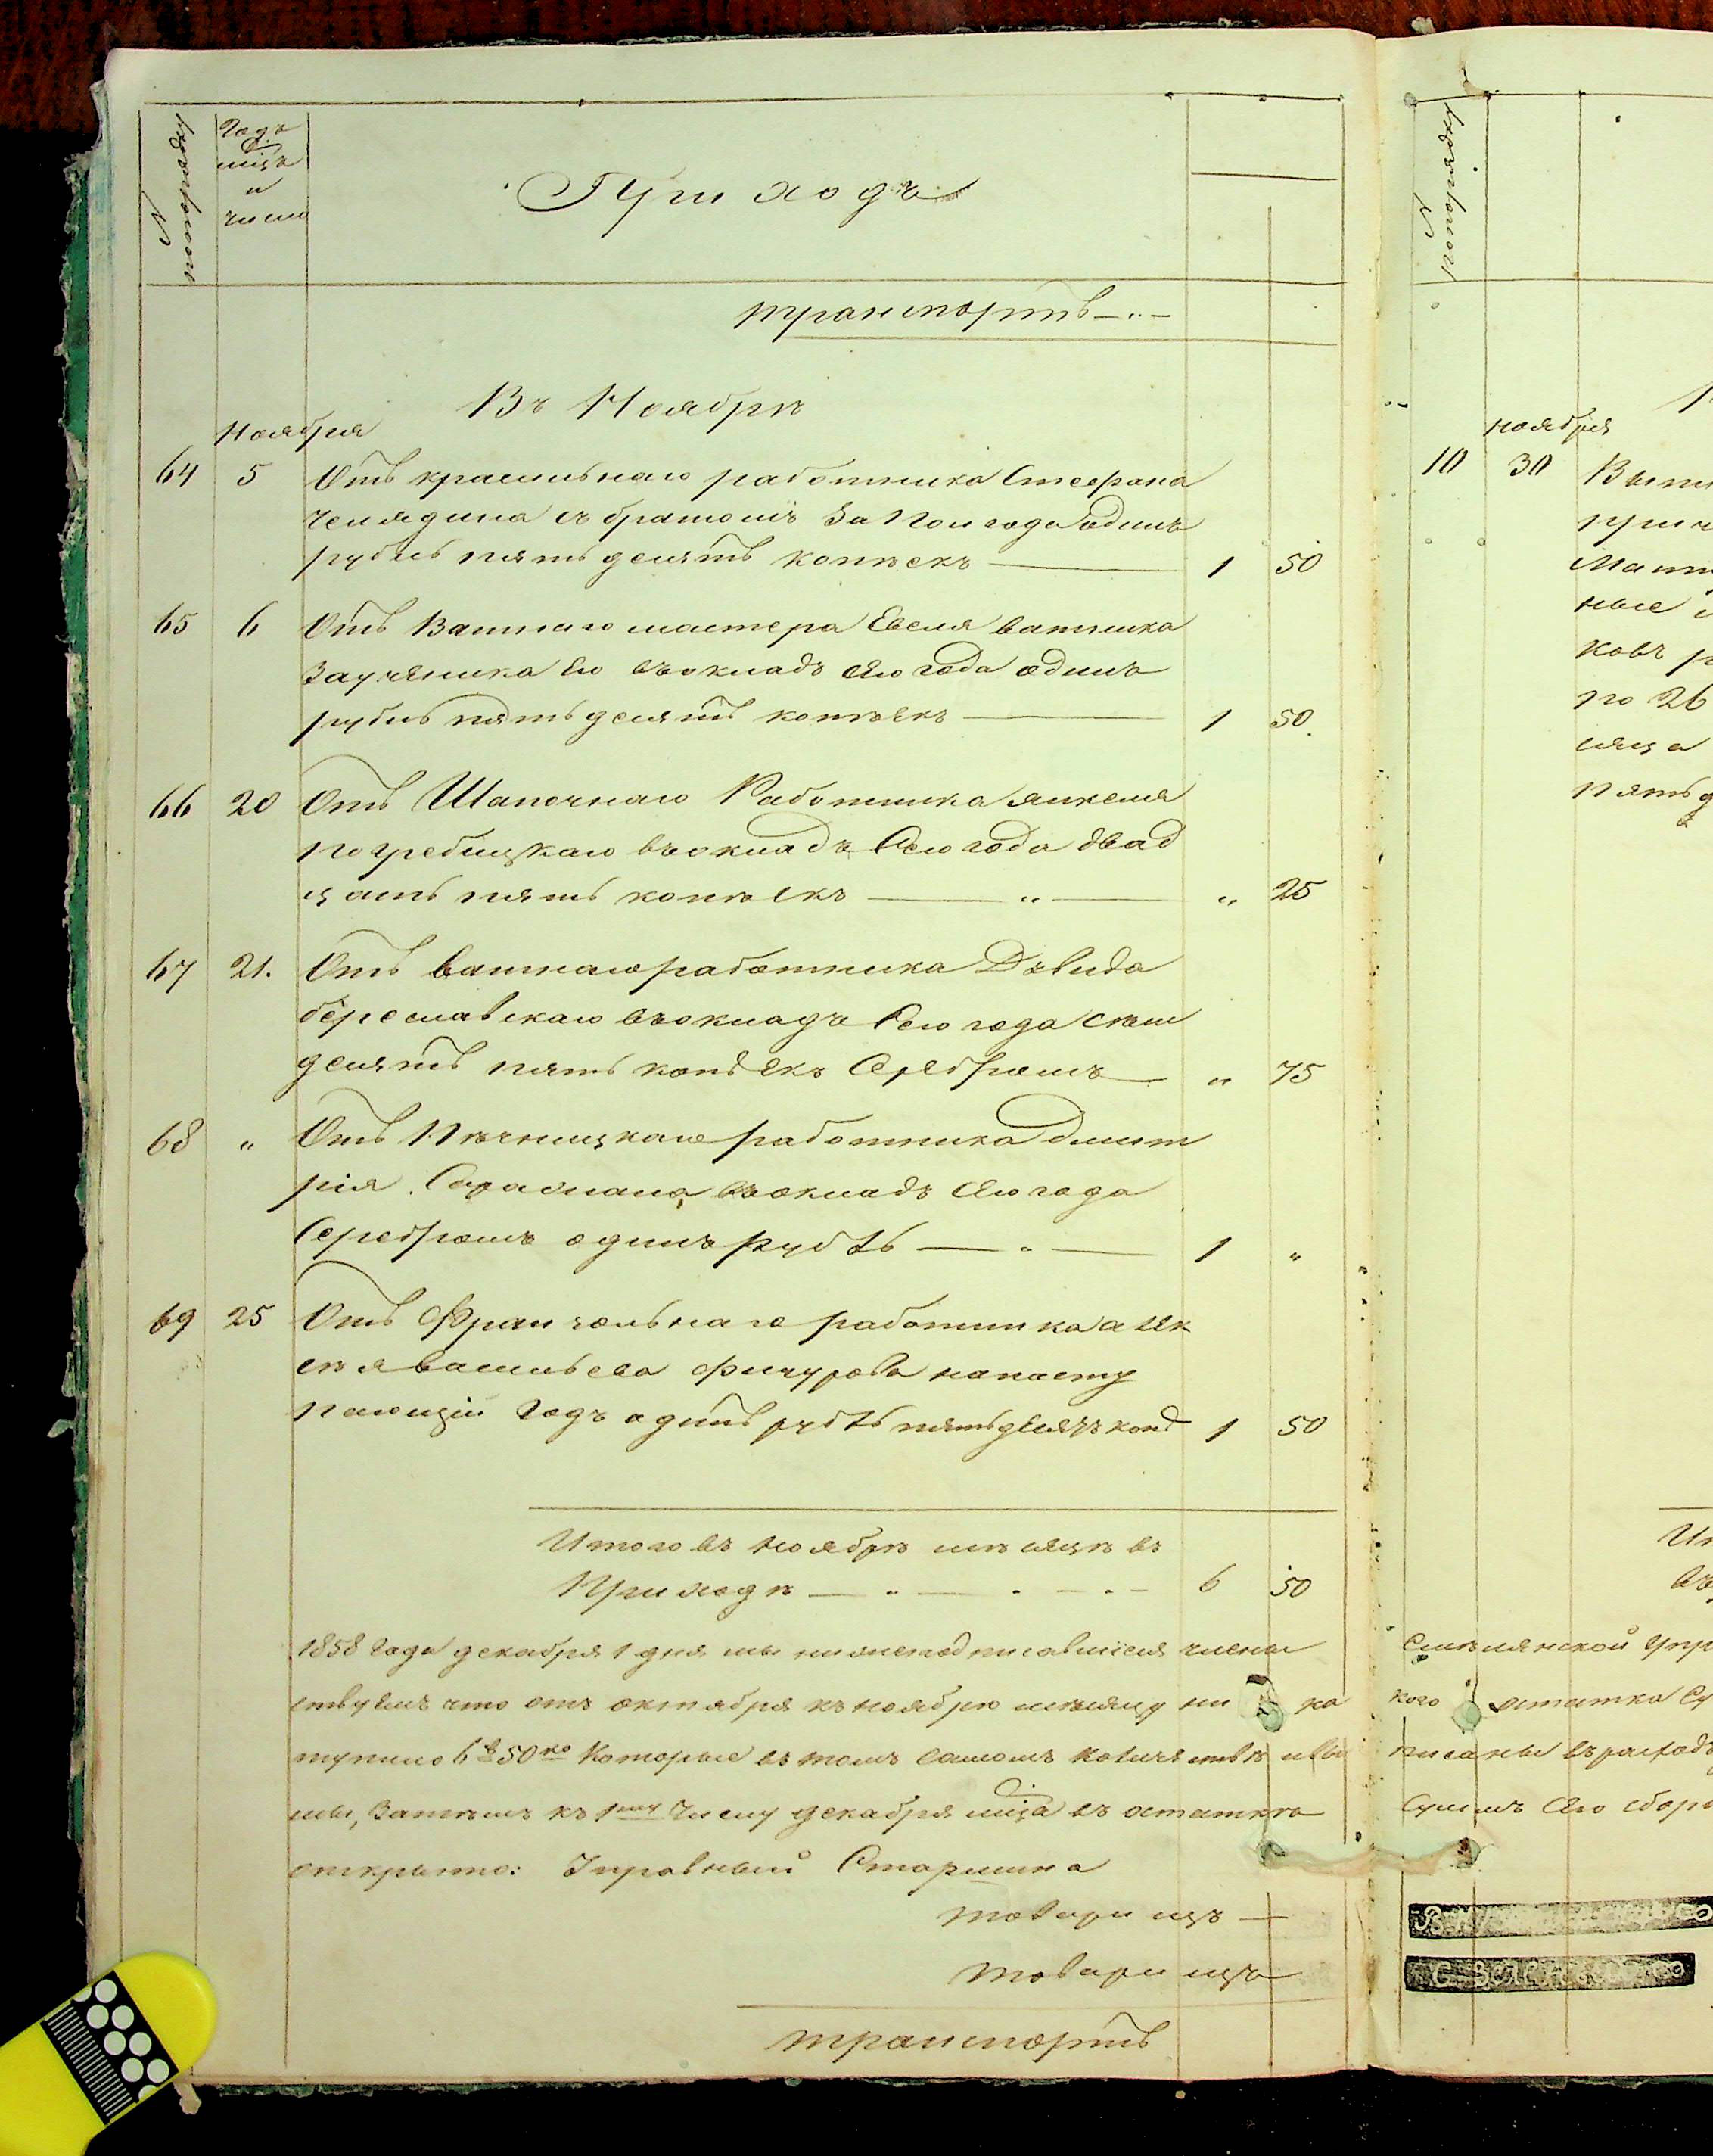 № по порядку
Годъ
мѣцъ
и
число
Приходъ
транспортъ
Въ Ноябрѣ
Ноября
64 5 Отъ красильнаго работника Стефана
Челядина съ братомъ за Пол года одинъ
рубль пять десятъ копѣекъ 1 50
65 6 Отъ Ватнаго мастера Евеля ватника
За ученика его въокладъ сего года одинъ
рубль пять десятъ копѣекъ 1 50
66 20 Отъ Шапочнаго Работника янкеля
погребицкаго въокладъ Сего года двад
цать пять копѣекъ „ 25
67 21. Отъ ватнаго работника Давида
береславскаго въокладъ Сего года семь
десятъ пять копѣекъ Серебромъ „ 75
68 „ Отъ Пѣчницкаго работника дмит
рія въокладъ сего года
Серебромъ одинъ рубль 1 „
69 25 Отъ Франзольнаго работника алек
сѣя васильева фигурова на насту
пающій Годъ одинъ рубль пятьдесятъ коп 1 50
Итого въ ноябрѣ мѣсяцѣ въ
Приходѣ 6 50
1858 года декабря 1 дня мы нижеподписавшіеся члены
ствуемъ что отъ октября къ ноябрю мѣсяцу ни ка
тупило 6 р 50 ко Которые въ томъ самомъ количествѣ
мы, Затѣмъ къ 1му Числу декабря мѣца въ остатке
открыто: Управный Старшина
товарищъ
товарищъ
транспортъ
№ по порядку
ноября
10 30
Мати
ные
ковъ
по 26
сяца
пятьд
Смѣлянской Упр
кого остатка Су
писаны въ расходъ
Суммъ сего сбора